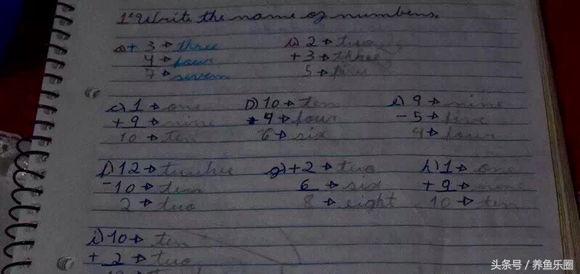 1º Write the name of numbers.
a) + 3 → three
4 → four
7 → seven
b) 2 → two
+ 3 → three
5 → five
c) 1 → one
+ 9 → nine
10 → ten
D) 10 → ten
4 → four
6 → six
e) 9 → nine
- 5 → five
4 → four
f) 12 → twelve
- 10 → ten
2 → two
g) + 2 → two
6 → six
8 → eight
h) 1 → one
+ 9 → nine
10 → ten
i) 10 → ten
+ 2 → two
头条号 / 养鱼乐圈